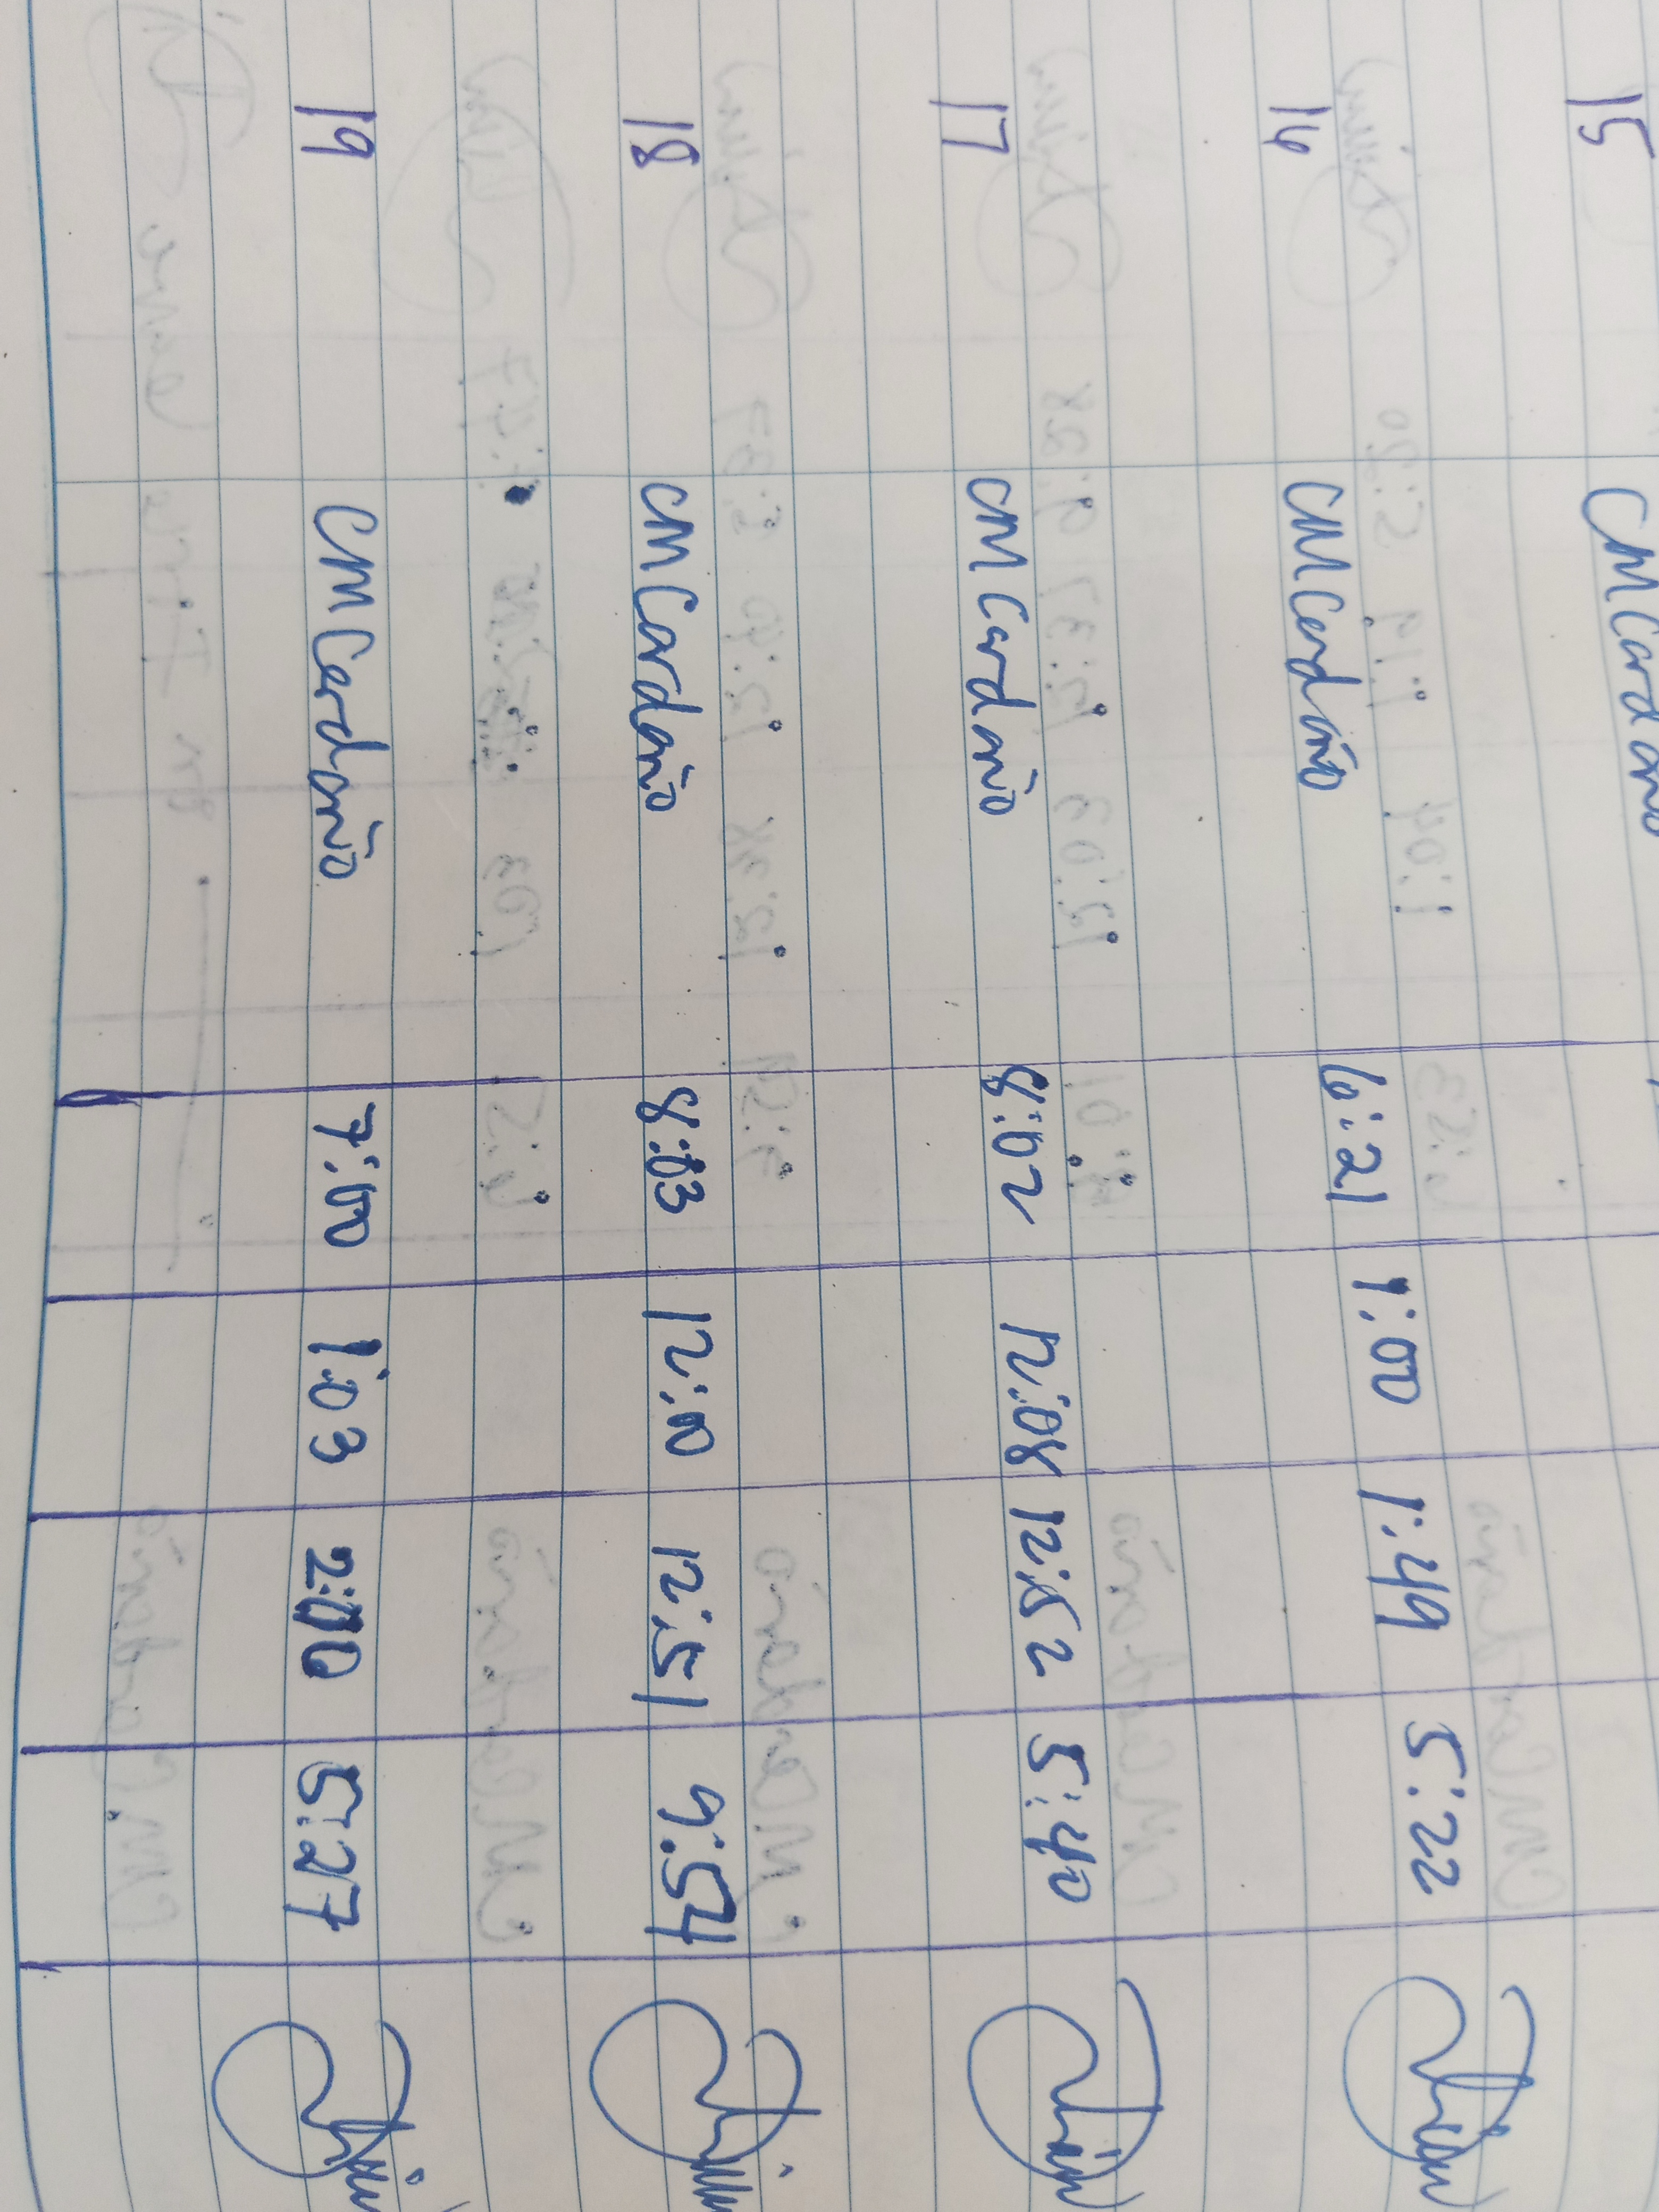 15 CM Cardaño
16 CM Cardaño 6:21 1:00 1:49 5:22
17 CM Cardaño 8:02 12:08 12:52 5:40
18 CM Cardaño 8:03 12:00 12:51 9:54
19 CM Cardaño 7:00 1:03 2:00 5:27